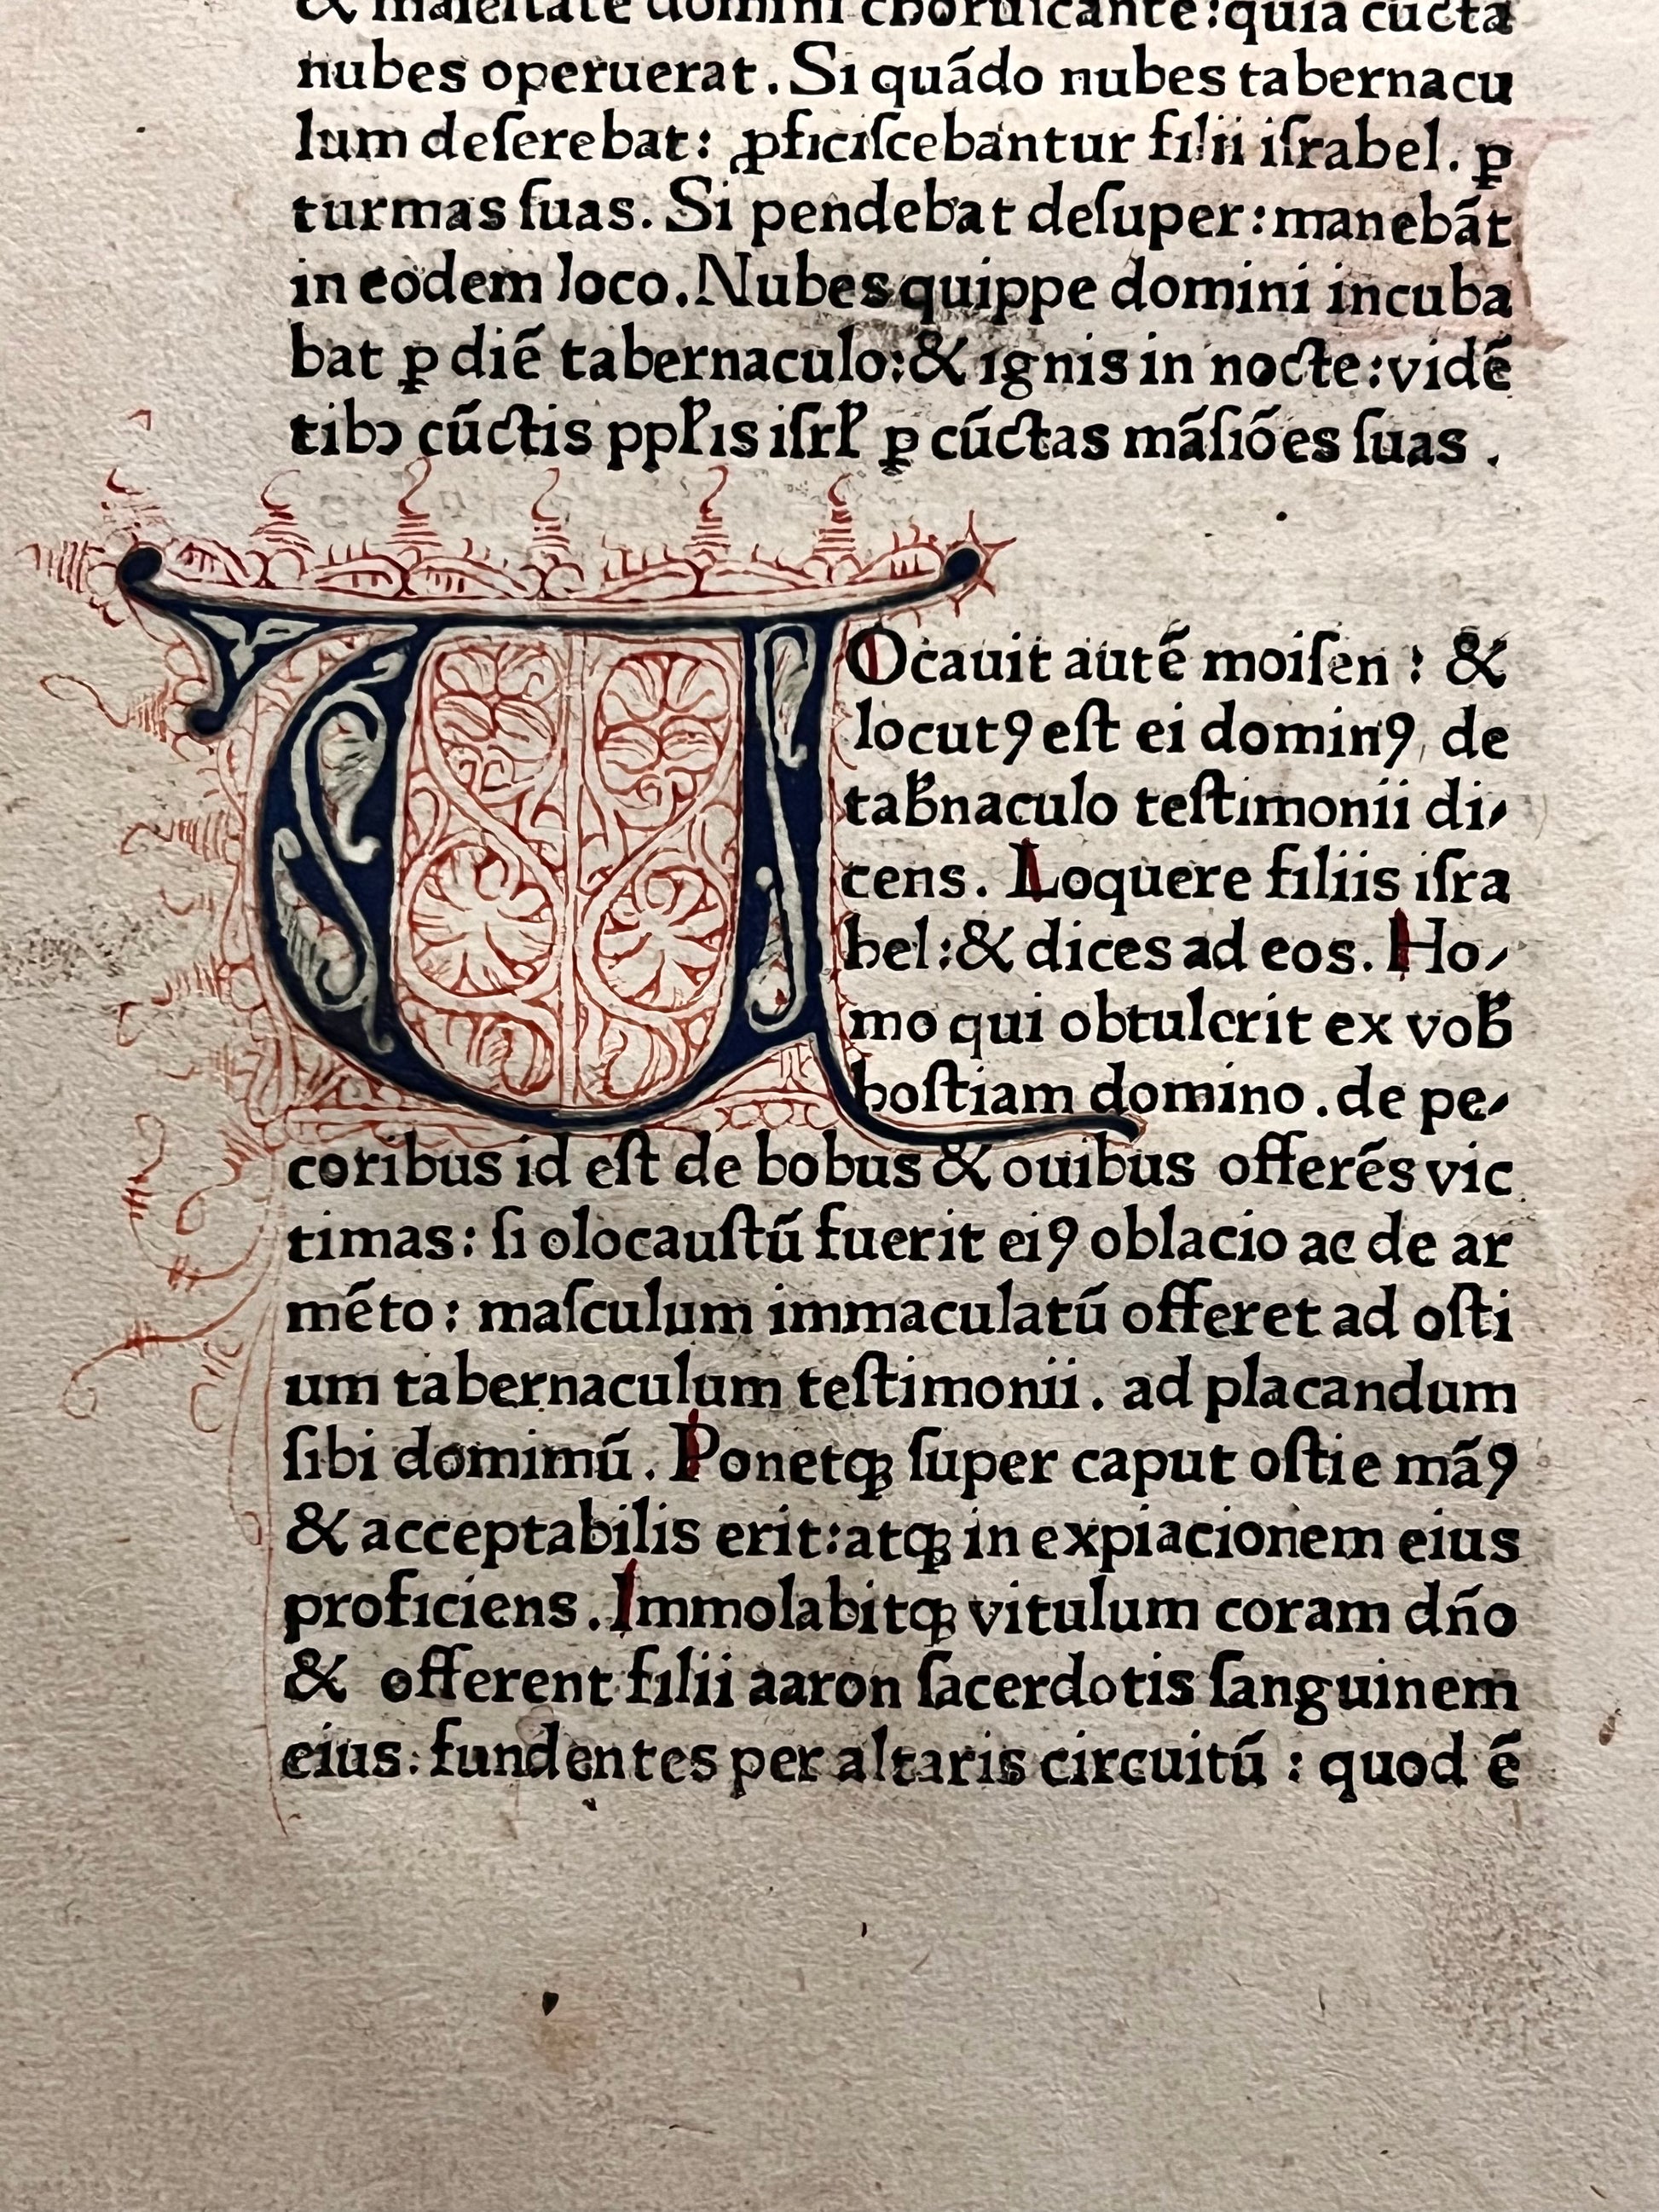 & maiestate domini choruscante:quia cūcta
nubes operuerat. Si quādo nubes tabernacu
lum deſerebat: ꝓficiſcebantur filii iſrahel. ꝑ
turmas ſuas. Si pendebat deſuper:manebāt
in eodem loco. Nubes quippe domini incuba
bat ꝑ diē tabernaculo:& ignis in nocte:vidē
tibꝫ cūctis ppl̄is iſrl̄ ꝑ cūctas māſiōes ſuas.
VOcauit autē moiſen : &
locutꝰ eſt ei dominꝰ de
tab̄naculo teſtimonii di⸗
cens. Loquere filiis iſra
hel:& dices ad eos. Ho⸗
mo qui obtulerit ex vob̄
hoſtiam domino.de pe⸗
coribus id eſt de bobus & ouibus offerēs vic
timas: ſi olocauſtū fuerit eiꝰ oblacio ac de ar
mēto: maſculum immaculatū offeret ad oſti
um tabernaculum teſtimonii. ad placandum
ſibi domimū. Ponetqꝫ ſuper caput oſtie māꝰ
& acceptabilis erit:atqꝫ in expiacionem eius
proficiens. Immolabitqꝫ vitulum coram dn̄o
& offerent filii aaron ſacerdotis ſanguinem
eius: fundentes per altaris circuitū : quod ē